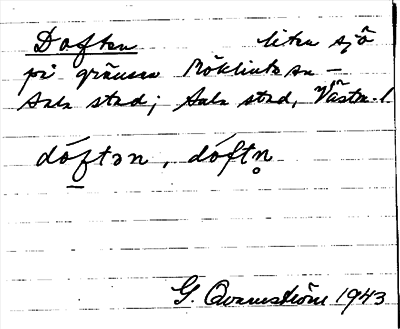 Daften liten sjö
på gränsen Möklinta sn –
Sala stad; Sala stad, Västm. l.
dóftən, dóftn̥
G. Qvarnström 1943